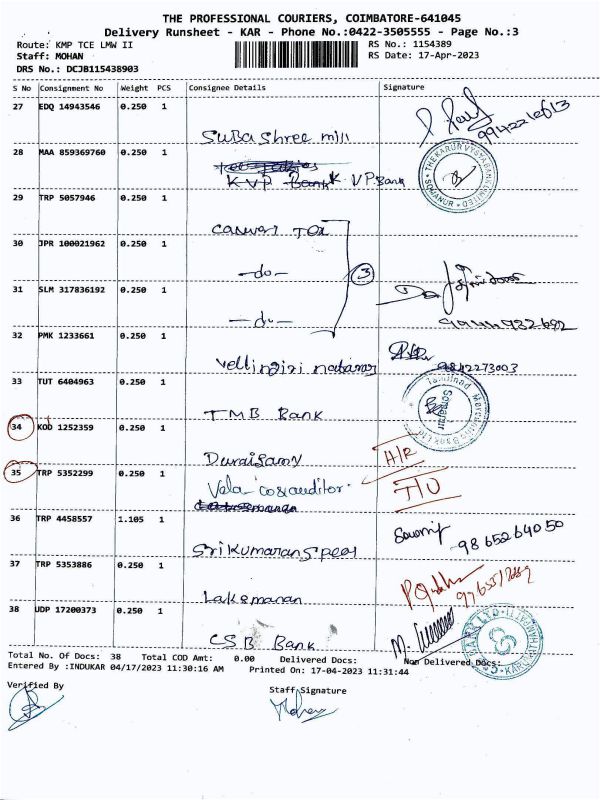 THE PROFESSIONAL COURIERS, COIMBATORE-641045
Delivery Runsheet - KAR - Phone No.:0422-3505555 - Page No.:3
Route: KMP TCE LMW II
RS No.: 1154389
Staff: MOHAN
RS Date: 17-Apr-2023
DRS No.: DCJB115438903
S No Consignment No Weight PCS Consignee Details Signature
27 EDQ 14943546 0.250 1
Suba Shree mill
28 MAA 859369760 0.250 1
KVP Bank K VP.Bank
THE KARUR VYSYA BANK LIMITED
SOMANUR
29 TRP 5057946 0.250 1
30 JPR 100021962 0.250 1
-do-
3
31 SLM 317836192 0.250 1
-do-
32 PMK 1233661 0.250 1
9842273003
33 TUT 6404963 0.250 1
TMB Bank
Tamilnad Mercantile Bank Ltd
Somanur
34 KOD 1252359 0.250 1
Duraisamy
H/R
35 TRP 5352299 0.250 1
Vela
T/U
36 TRP 4458557 1.105 1
Sri Kumaran
9865264050
37 TRP 5353886 0.250 1
Laksmanan
38 UDP 17200373 0.250 1
CSB Bank
Total No. Of Docs: 38 Total COD Amt: 0.00 Delivered Docs: Non Delivered Docs:
Entered By :INDUKAR 04/17/2023 11:30:16 AM Printed On: 17-04-2023 11:31:44
Verified By
Staff Signature